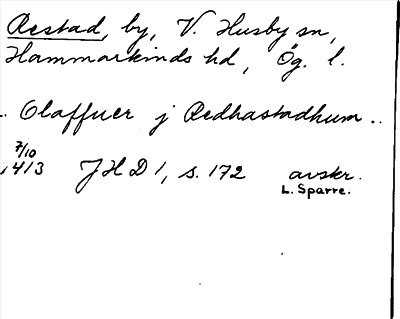 Restad, by, V. Husby sn,
Hammarkinds hd, Ög. l.
. Olaffuer j Redhastadhum ..
7/10
1413 JHD 1, s. 172 avskr.
L. Sparre.